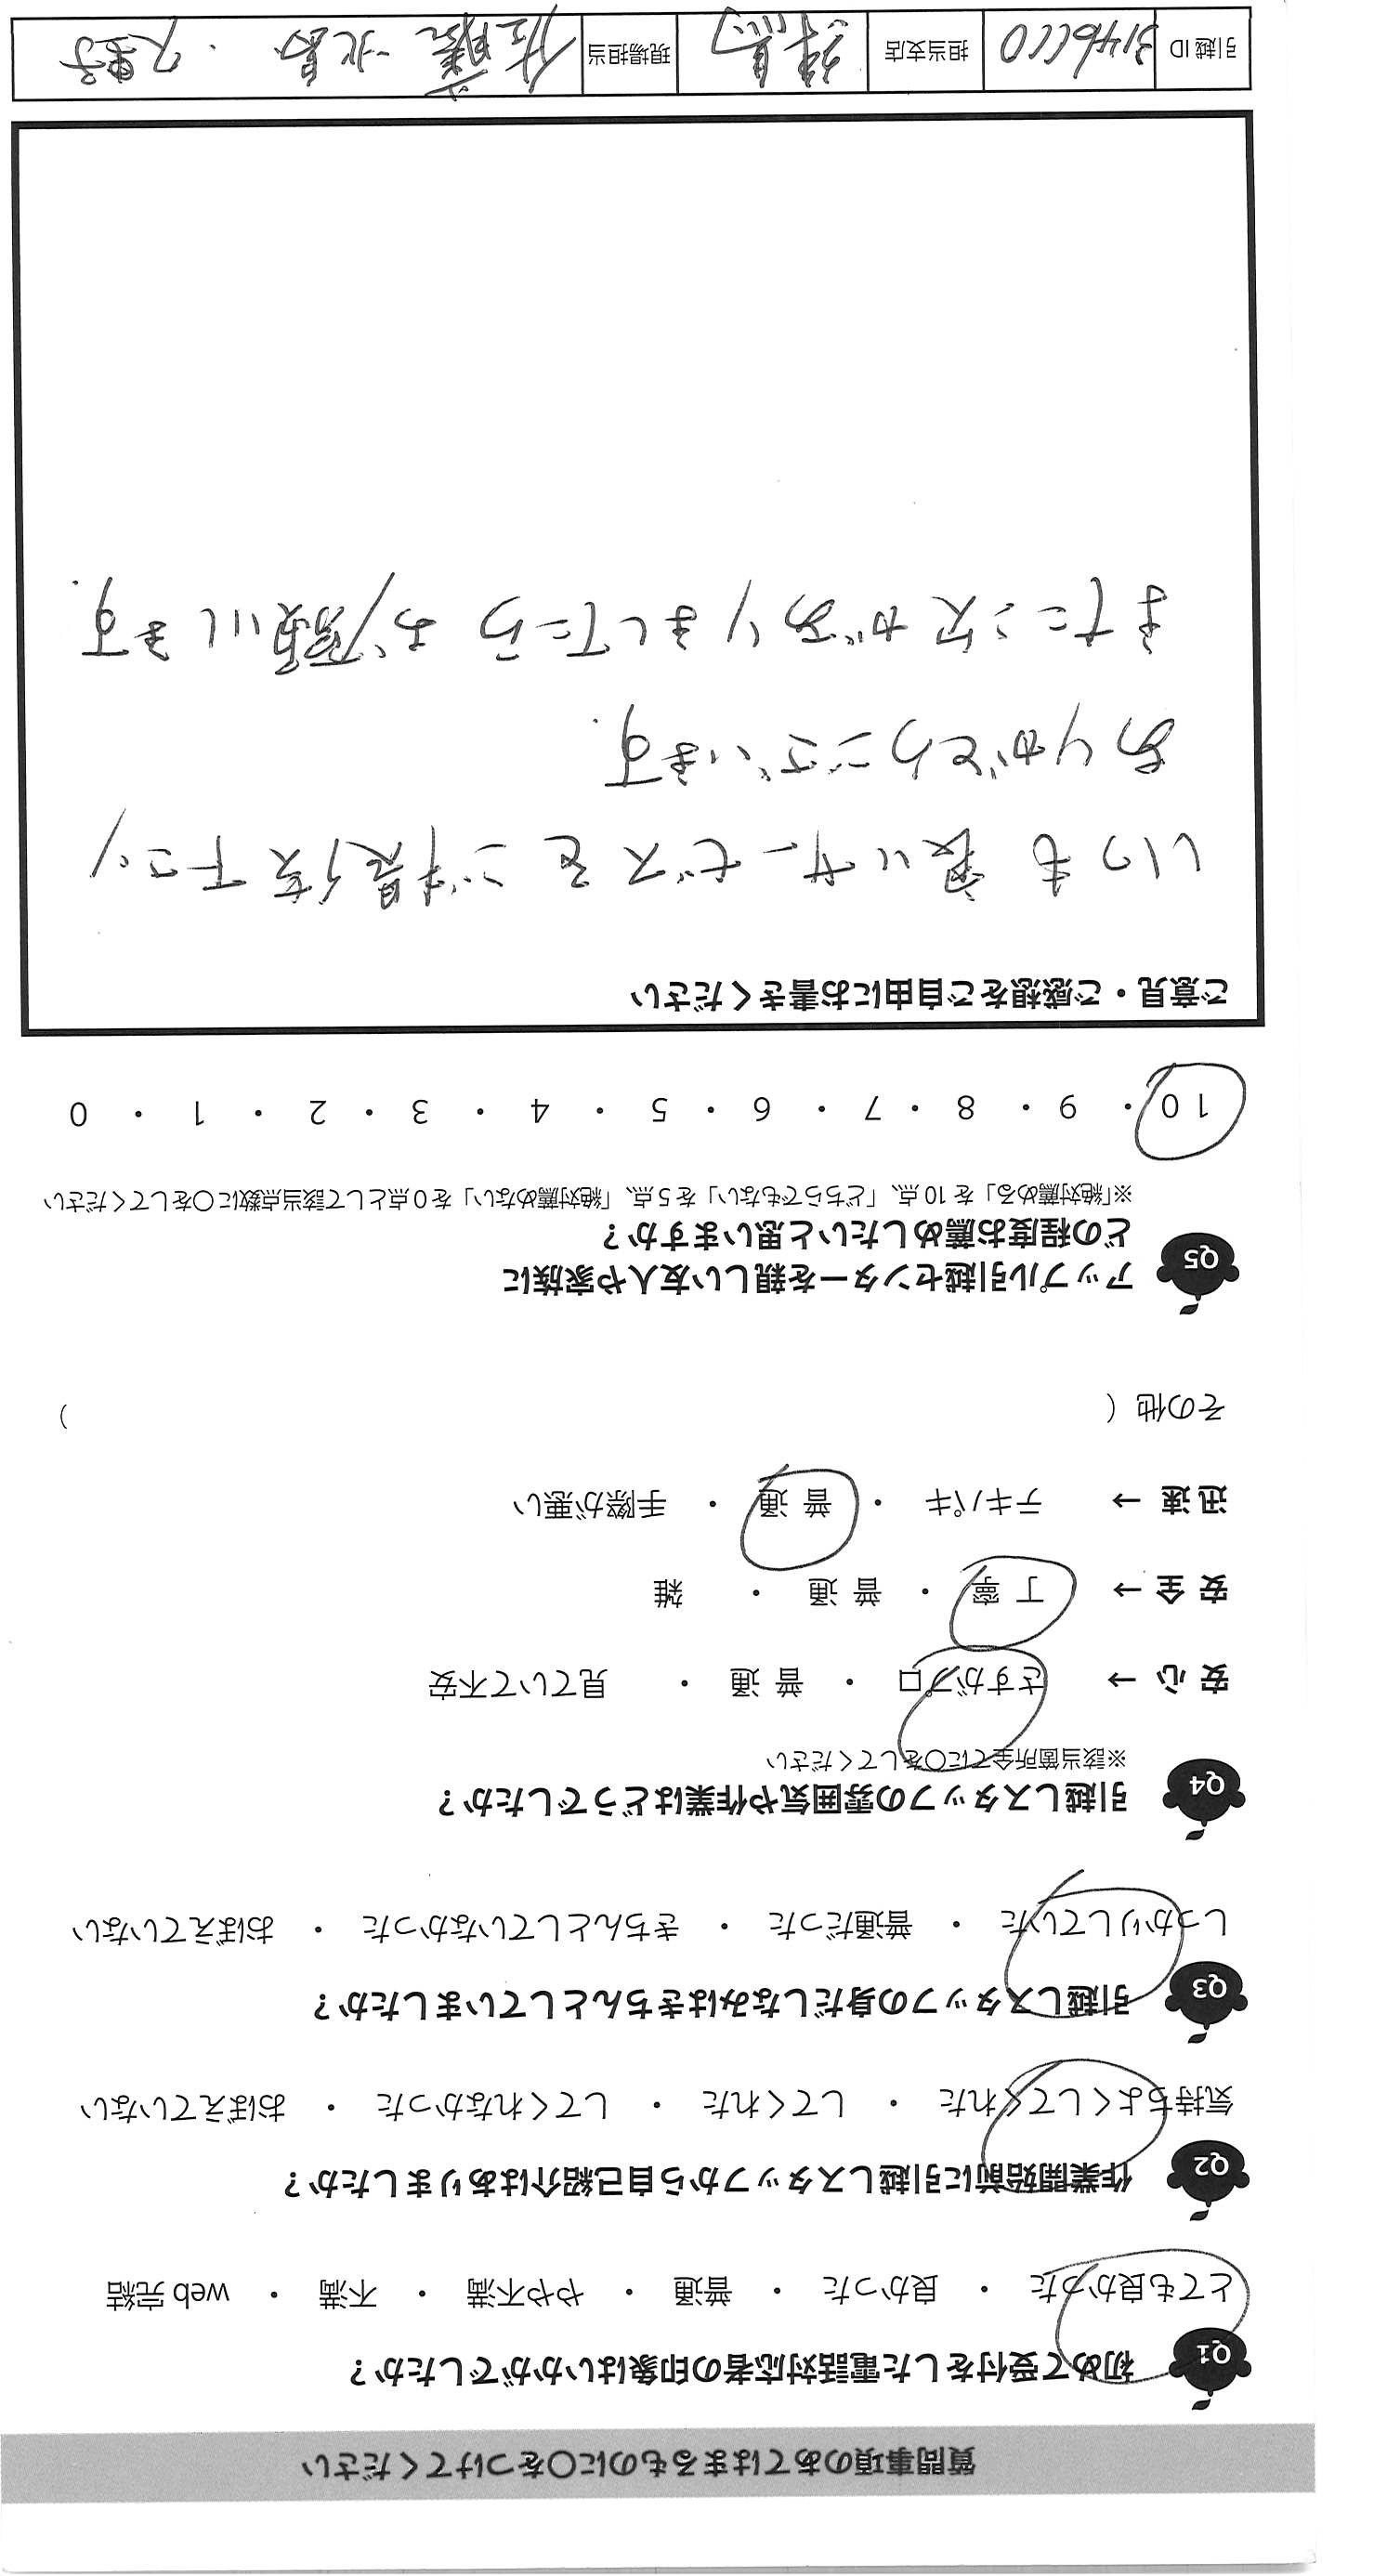 質問事項のあてはまるものに○をつけてください
Q1 初めて受付をした電話対応者の印象はいかがでしたか？
とても良かった ・ 良かった ・ 普通 ・ やや不満 ・ 不満 ・ web 完結
Q2 作業開始前に引越しスタッフから自己紹介はありましたか？
気持ちよくしてくれた ・ してくれた ・ してくれなかった ・ おぼえていない
Q3 引越しスタッフの身だしなみはきちんとしていましたか？
しっかりしていた ・ 普通だった ・ きちんとしていなかった ・ おぼえていない
Q4 引越しスタッフの雰囲気や作業はどうでしたか？
※該当箇所全てに○をしてください
安 心 → さすがプロ ・ 普 通 ・ 見ていて不安
安 全 → 丁 寧 ・ 普 通 ・ 雑
迅 速 → テキパキ ・ 普 通 ・ 手際が悪い
その他（ ）
Q5 アップル引越センターを親しい友人や家族に
どの程度お薦めしたいと思いますか？
※「絶対薦める」を 10 点、「どちらでもない」を 5 点、「絶対薦めない」を 0 点として該当点数に○をしてください
10 ・ 9 ・ 8 ・ 7 ・ 6 ・ 5 ・ 4 ・ 3 ・ 2 ・ 1 ・ 0
ご意見・ご感想をご自由にお書きください
いつも良いサービスをご提供下さり
ありがとうございます.
また次がありましたらお願いします.
引越 ID 担当支店 練馬 現場担当 佐藤